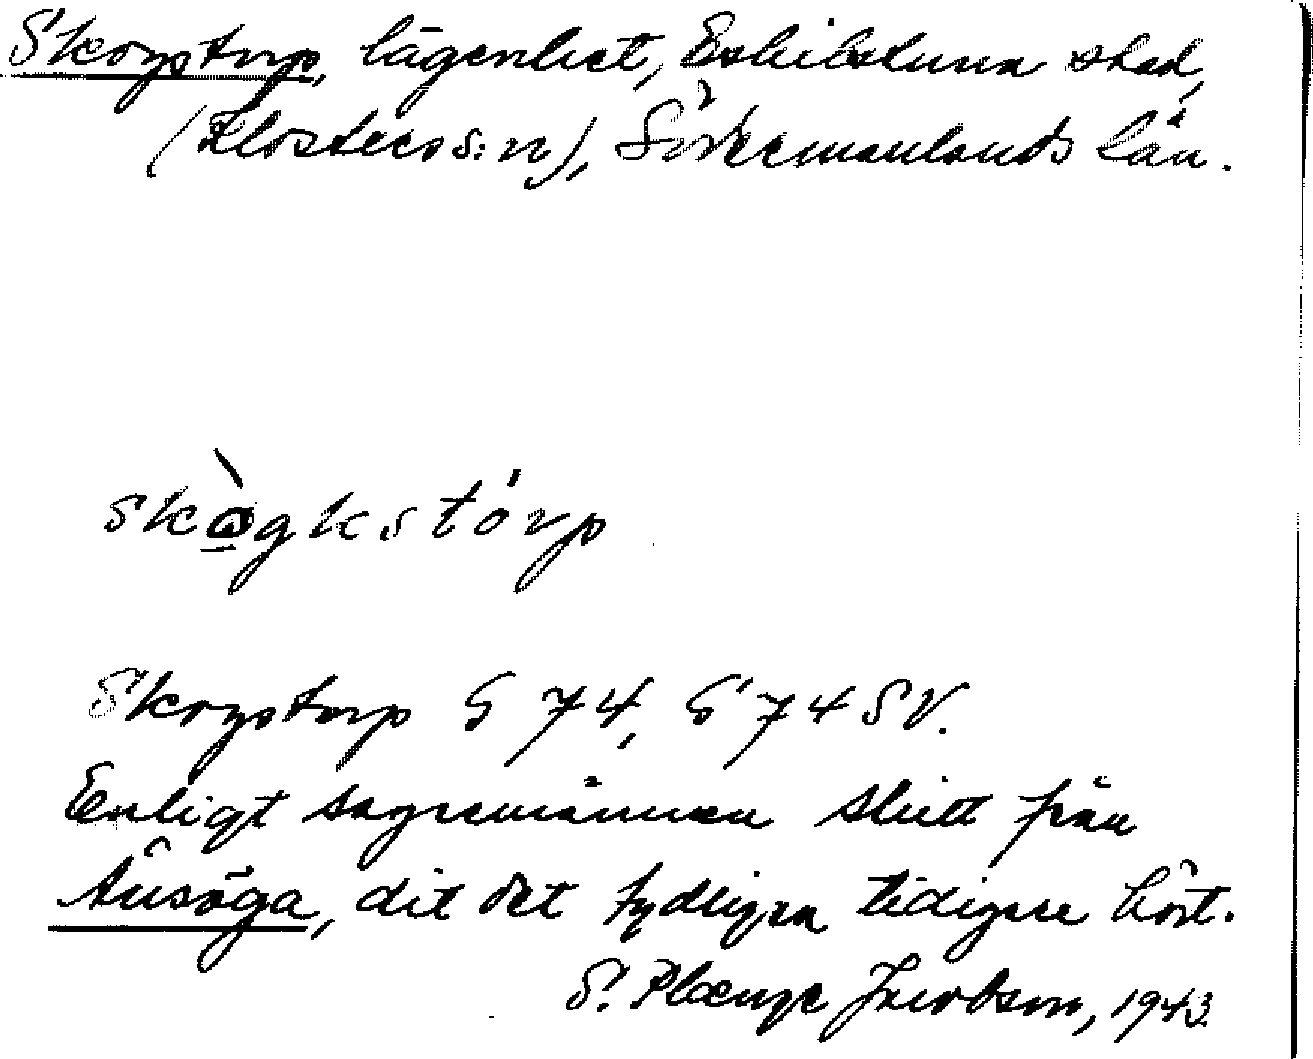 Skogstorp, lägenhet, Eskilstuna stad,
(Klosters s:n), Södermanlands län.
skògkstórp
Skogstorp G 74, G 74 SV.
Enligt sagesmannen skilt från
Tunsöga, dit det tydligen tidigare hört.
S. Plænge Jacobson, 1943.